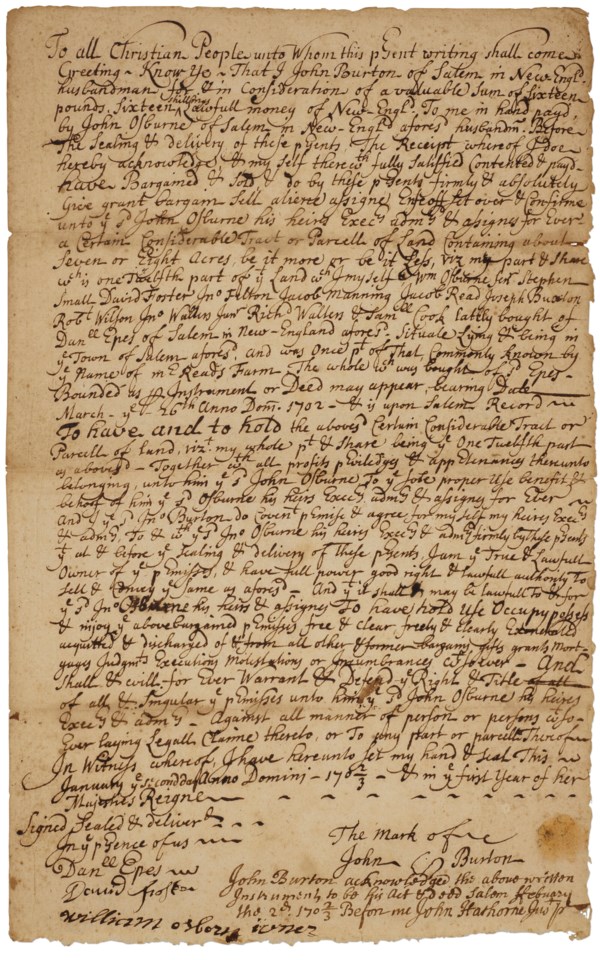 To all Christian People unto Whom this p'sent writing shall come
Greeting ~ Know Ye ~ That I John Burton of Salem in New-Engld.
husbandman for & in Consideration of a valuable Sum of Sixteen
pounds Sixteen shillings Lawfull money of New-Engld. To me in hand payd
by John Osburne of Salem in New-Engld aforesd husbandm: Before
the Sealing & delivery of these p'sents. The Receipt whereof I doe
hereby acknowledge & my self therewth fully Satisfied Contented & payd-
have Bargained & Sold & do by these p'sents firmly & absolutely
Give grant bargain Sell aliene assigne Enfeoff Set over & Confirme
unto ye sd John Osburne his heires Execrs admrs & assignes for Ever
a Certain Considerable Tract or Parcell of Land Containing about
Seven or Eight Acres, be it more or be it Less, viz my part & Share
wch is one Twelfth part of ye Land wch I myself & Wm Osburne Senr Stephen
Small David Foster Jno Felton Jacob Manning Jacob Read Joseph Buxton
Robt Wilson Jno Walters Junr Richd Walters & Samll Cook Lattly bought of
Danll Epes of Salem in New-England aforesd: Situate Lying & being in
ye Town of Salem aforesd. and was Once pt of That Commonly Known by
ye Name of mr Reads Farm. The whole wch was bought of sd Epes-
Bounded as p Instrument or Deed may appear bearing Date
March - ye 26th Anno Dom: 1702 - & is upon Salem Record ~
To have and to hold the abovesd Certain Considerable Tract or
Parcell of Land, vizt my whole pt & Share being ye One Twelfth part
as abovesd - Together wth all profits priviledges & appurtenances thereunto
belonging, unto him ye sd John Osburne To ye sole proper Use benefit &
behoof of him ye sd Osburne his heirs Execrs admrs & assignes for Ever
And I ye sd Jno Burton do Covent p'mise & agree for my self my heires Execrs
& admrs, To & wth ye sd Jno Osburne his heires Execrs & admrs firmly by these p'sents
yt at & before ye Sealing & delivery of These p'sents, I am ye True & Lawfull
Owner of ye p'misses, & have full power good right & lawfull authority to
Sell & Convey ye same as aforesd - And yt it shall & may be lawfull To & for
ye sd Jno Osburne his heirs & assignes To have hold Use Occupy possess
& injoy ye above bargained p'misses free & clear freely & clearly Exonerated
acquitted & discharged of & from all other & former bargains gifts grants Mort-
gages Judgmts Executions Molestations or Incumbrances wtsoever - And
Shall & will for Ever Warrant & Defend ye Right & Title of all
of all & Singular ye p'misses unto him ye sd John Osburne his heires
Execrs & admrs - Against all manner of person or persons wtso-
Ever laying Legall Claime thereto, or To any part or parcell Thereof ~
In Witness whereof, I have hereunto set my hand & seal This
January ye second day Anno Domini - 1702/3 - & in ye first Year of her
Majesties Reigne
Signed Sealed & deliverd
In ye p'sence of us
The Mark of
Danll Epes
John Burton
David Foster
John Burton acknowledged the above written
Instrument to be his Act & deed Salem ffebruary
william osborn iuner
the 2d. 1702/3 Before me John Hathorne Jus p